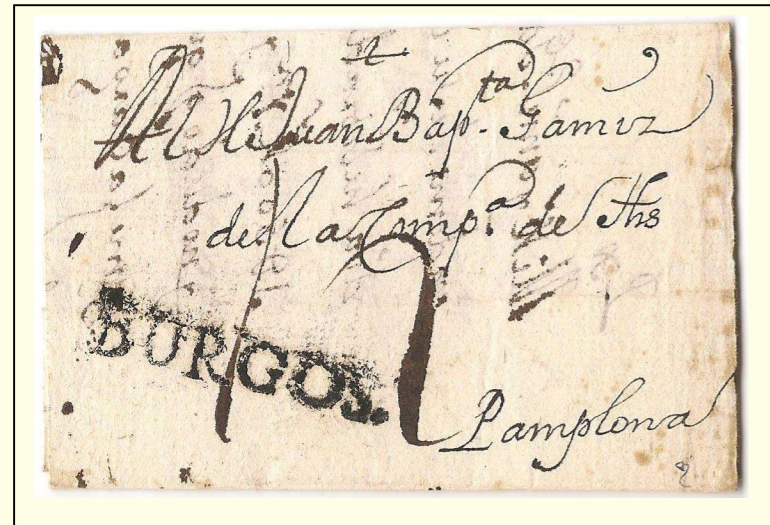 Al H. Juan Bap.ta
de la Comp.a de Jhs
BURGOS.
Pamplona